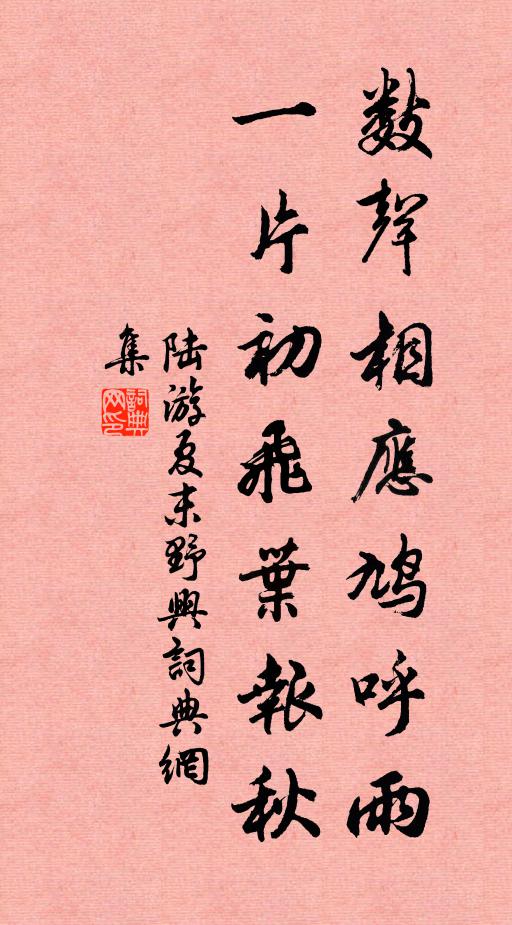 數聲相應鳩呼雨
一片初飛葉報秋
陸游夏末野興詞典網
集
詞典
网印